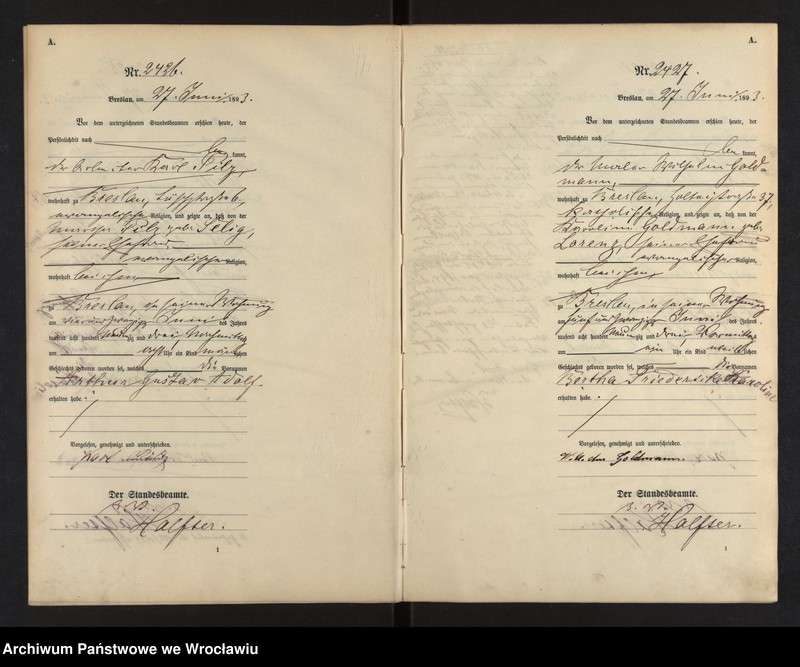 A.
Nr. 2426.
Breslau, am 27. Juni 1893.
Vor dem unterzeichneten Standesbeamten erschien heute, der
Persönlichkeit nach
kannt,
der Arbeiter Karl Pilz,
wohnhaft zu Breslau,
evangelischer Religion, und zeigte an, daß von der
Pilz geb. Selig,
seiner Ehefrau
evangelischer Religion,
wohnhaft bei ihm
zu Breslau, in seiner Wohnung
am vierundzwanzigsten Juni des Jahres
tausend acht hundert neunzig und drei Nachmittags
um Uhr ein Kind männlichen
Geschlechts geboren worden sei, welches die Vornamen
Arthur Gustav Adolf
erhalten habe.
Vorgelesen, genehmigt und unterschrieben.
Karl
Der Standesbeamte.
Halfter.
1
A.
Nr. 2427.
Breslau, am 27. Juni 1893.
Vor dem unterzeichneten Standesbeamten erschien heute, der
Persönlichkeit nach
kannt,
der Maler Wilhelm Gold-
mann,
wohnhaft zu Breslau, Holteistraße 37,
katholischer Religion, und zeigte an, daß von der
Karoline Goldmann geb.
Lorenz, seiner Ehefrau
evangelischer Religion,
wohnhaft bei ihm
zu Breslau, in seiner Wohnung
am fünfundzwanzigsten Juni des Jahres
tausend acht hundert neunzig und drei Vormittags
um ein Uhr ein Kind weiblichen
Geschlechts geboren worden sei, welches die Vornamen
Bertha Friederike Karoline
erhalten habe.
Vorgelesen, genehmigt und unterschrieben.
Wilhelm Goldmann.
Der Standesbeamte.
Halfter.
1
Archiwum Państwowe we Wrocławiu